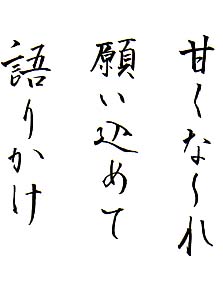 甘くな〜れ
願い込めて
語りかけ